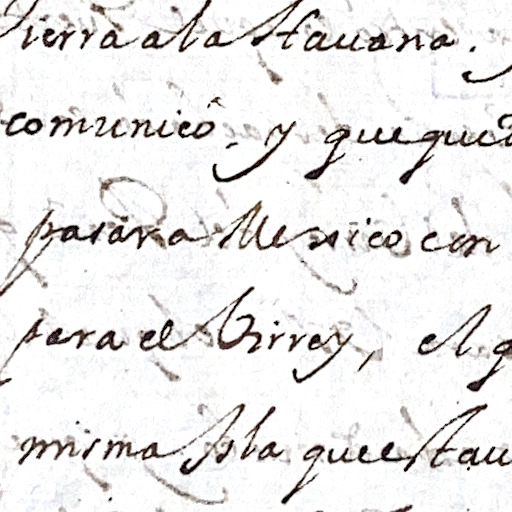 Tierra a la Havana.
comunicó, y que que
pasar a Mexico con
para el Virrey, el q
misma Isla que estau